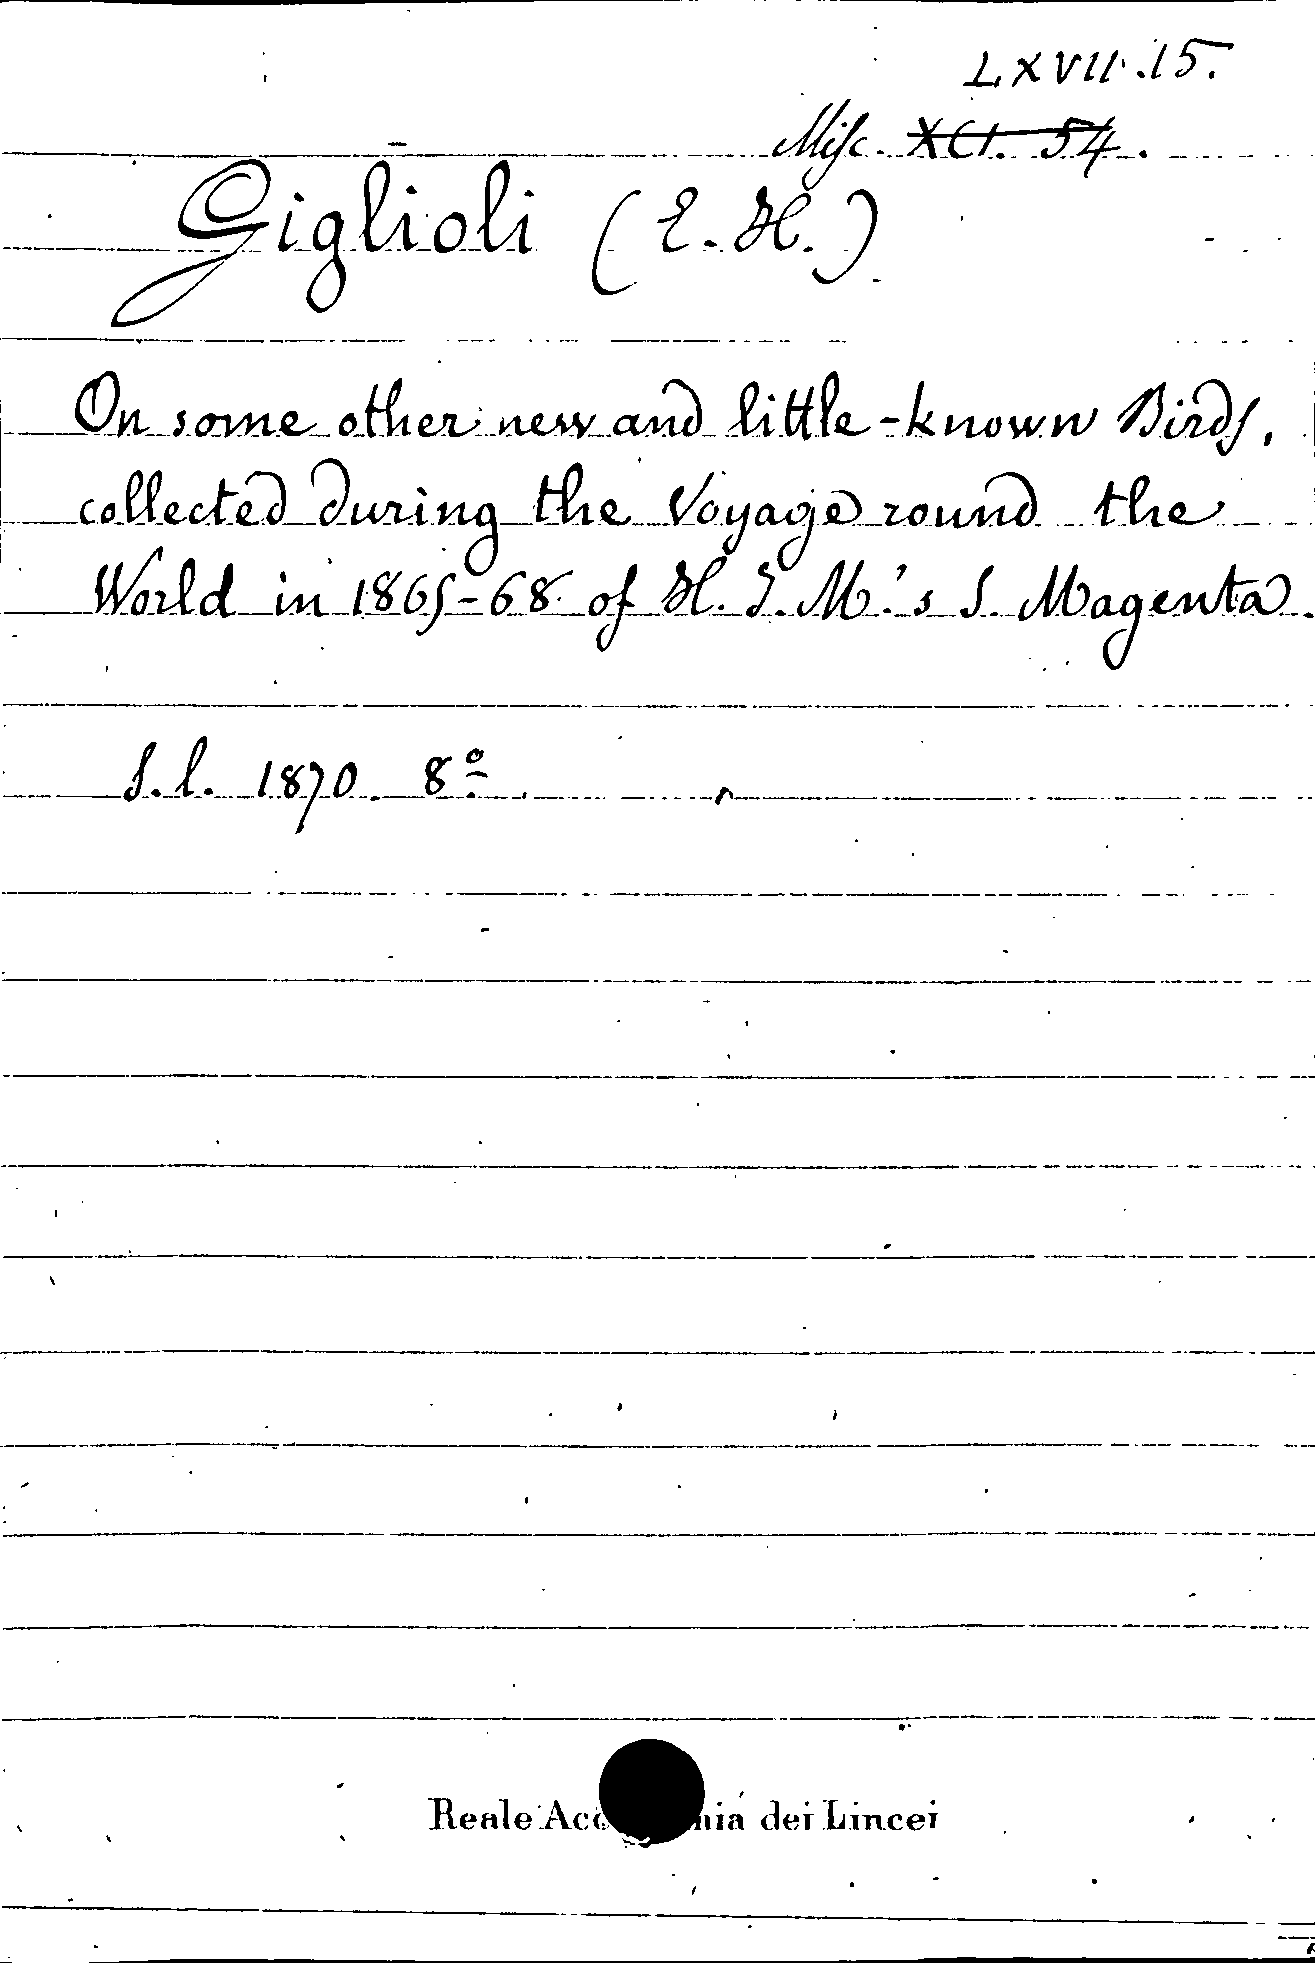 LXVII.15.
Misc. XCI. 54.
Giglioli (E. H.)
On some other new and little-known Birds,
collected during the Voyage round the
World in 1865-68 of H. I. M.'s S. Magenta.
S. l. 1870. 8º.
Reale Acc mia dei Lincei